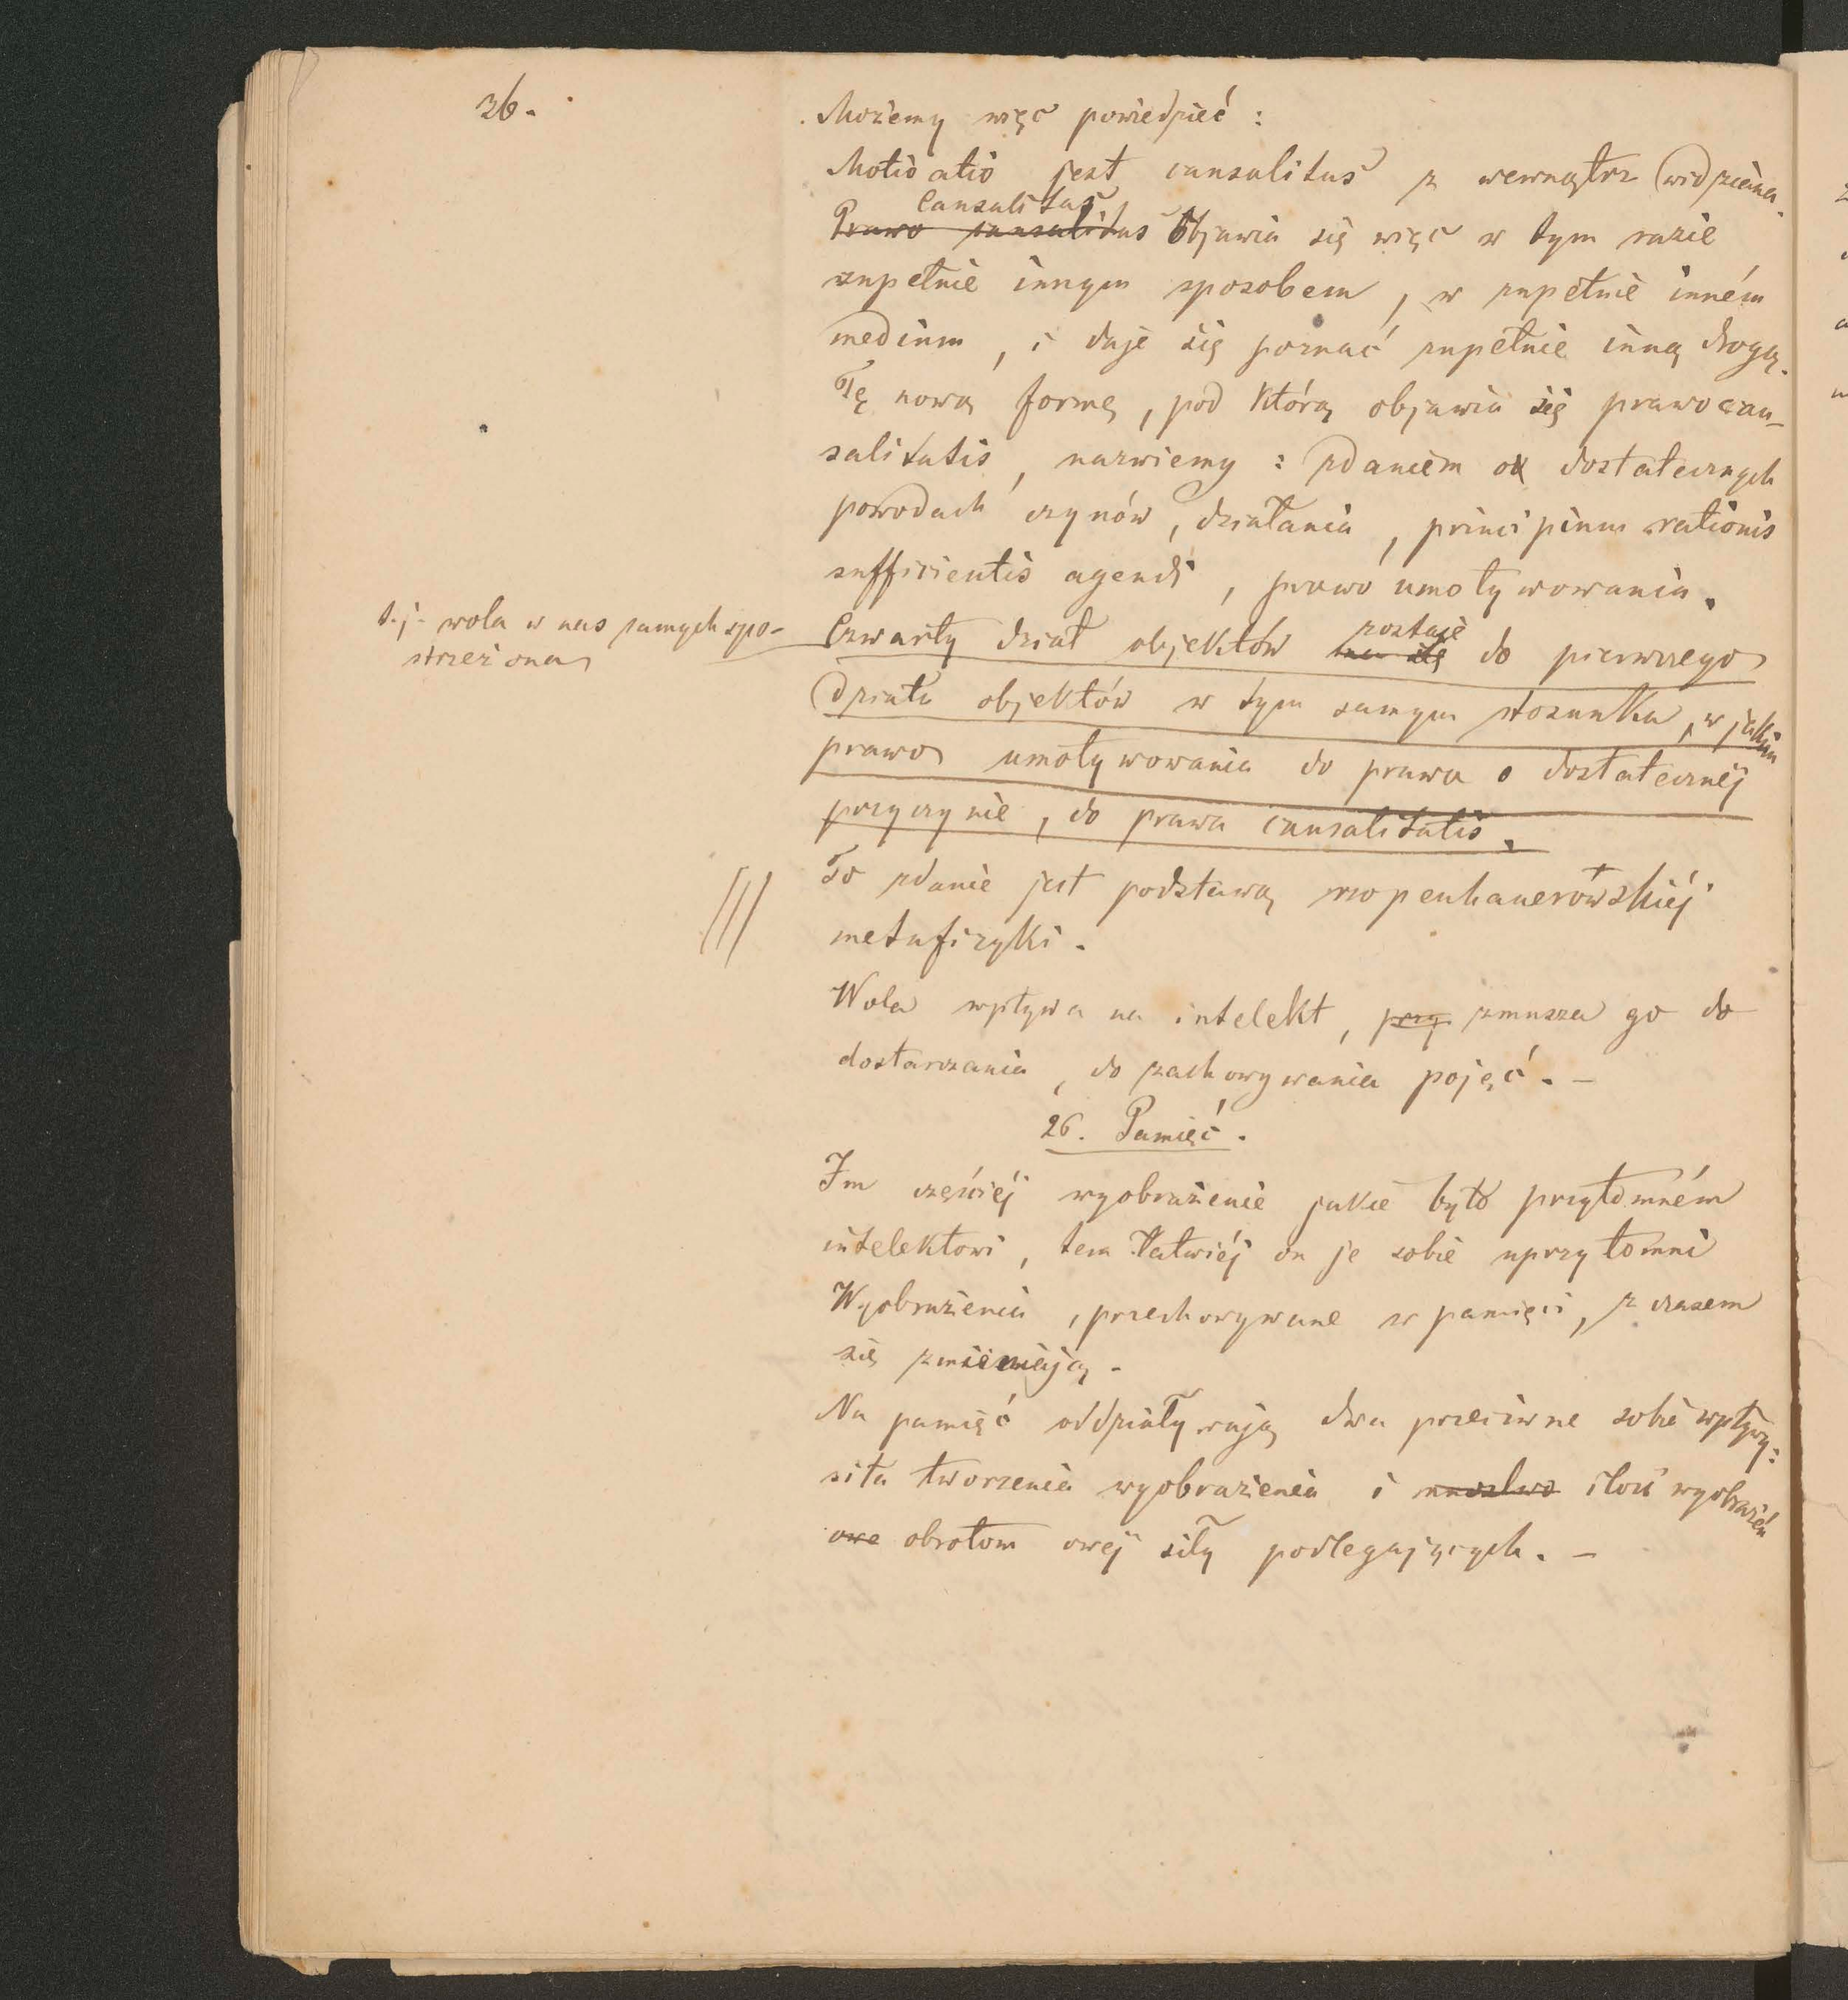 36.
Możemy więc powiedzieć :
Motivatio jest causalitas z wewnątrz widziana.
Causalitas
Prawo causalitas objawia się więc w tym razie
zupełnie innym sposobem, w zupełnie inném
medium, i daje się poznać zupełnie inną drogą.
Tę nową formę, pod którą objawia się prawo cau-
salitatis, nazwiemy : zdaniem o dostatecznych
powodach czynów, działania, principium rationis
sufficientis agendi, prawo umotywowania.
t. j. wola w nas samych spo-
strzeżona
zostaje
Czwarty dział objektów ma się do pierwszego
działu objektów w tym samym stosunku, w jakim
prawo umotywowania do prawa o dostatecznéj
przyczynie, do prawa causalitatis.
To zdanie jest podstawą szopenhauerowskiéj
metafizyki.
Wola wpływa na intelekt, przy zmusza go do
dostarczania, do zachowywania pojęć. –
26. Pamięć.
Im częściéj wyobrażenie jakie było przytomném
intelektowi, tem łatwiéj on je sobie uprzytomni
Wyobrażenia, przechowywane w pamięci, z czasem
się zmieniają.
Na pamięć oddziaływają dwa przeciwne sobie wpływy:
siła tworzenia wyobrażenia i mnóstwo ilość wyobrażeń
owe obrotom owéj siły podlegających. –